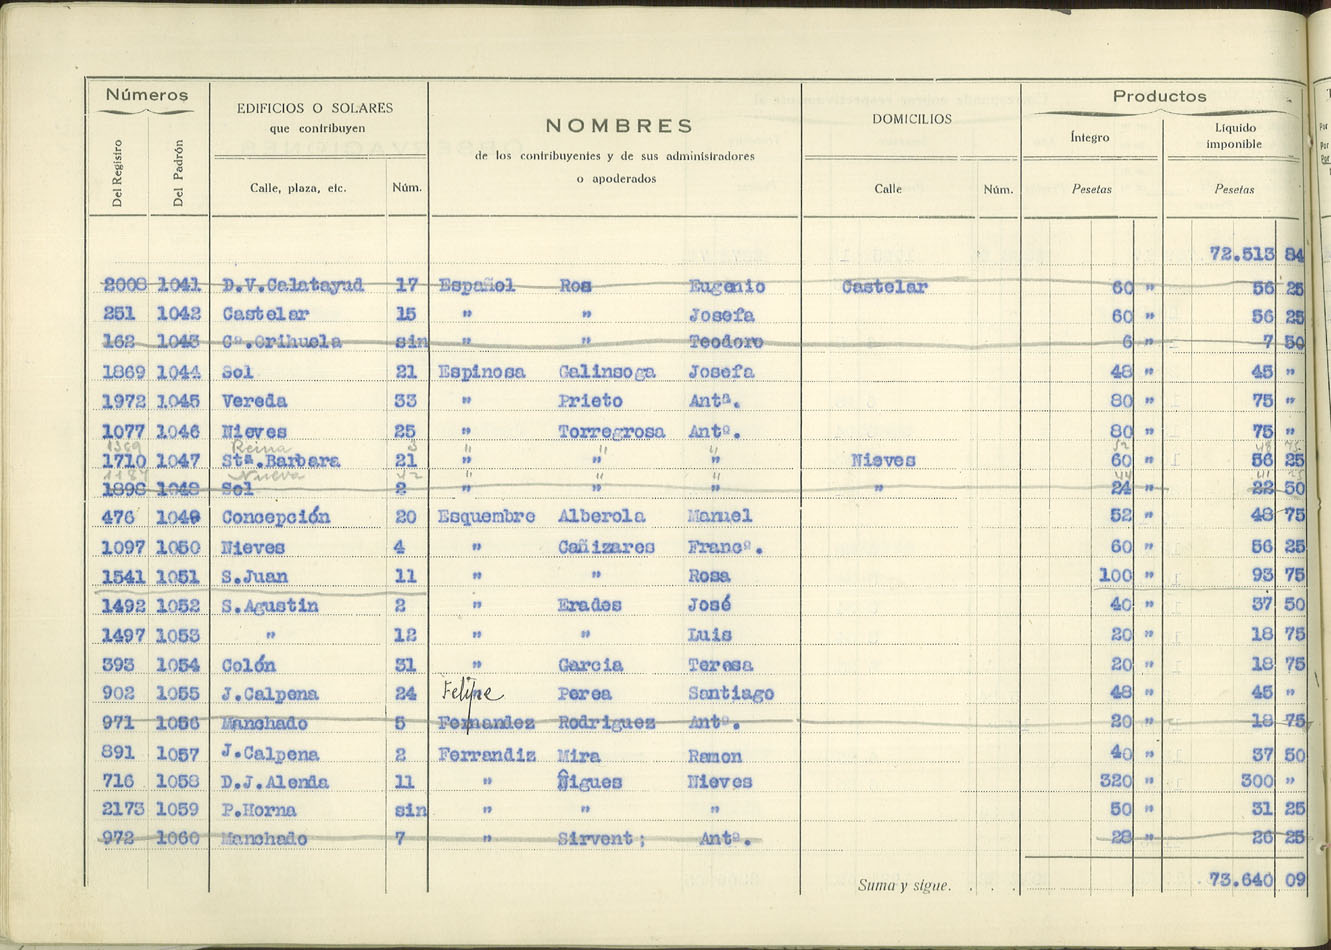 Números
EDIFICIOS O SOLARES
que contribuyen
NOMBRES
de los contribuyentes y de sus administradores
o apoderados
DOMICILIOS
Productos
Del Registro
Del Padrón
Calle, plaza, etc.
Núm.
Calle
Núm.
Íntegro
Pesetas
Líquido
imponible
Pesetas
72.513 84
2008 1041 D.V.Calatayud 17 Español Ros Eugenio Castelar 60 " 56 25
251 1042 Castelar 15 " " Josefa 60 " 56 25
162 1043 Cª.Orihuela sin " " Teodoro 6 " 7 50
1869 1044 Sol 21 Espinosa Galinsoga Josefa 48 " 45 "
1972 1045 Vereda 33 " Prieto Antª. 80 " 75 "
1077 1046 Nieves 25 " Torregrosa Antº. 80 " 75 "
1369 Reina 3 " " " 52 48 75
1710 1047 Stª.Barbara 21 " " " Nieves 60 " 56 25
1187 Nueva 42 " " " 44 41 25
1898 1048 Sol 2 " " " " 24 " 22 50
476 1049 Concepción 20 Esquembre Alberola Manuel 52 " 48 75
1097 1050 Nieves 4 " Cañizares Francº. 60 " 56 25
1541 1051 S.Juan 11 " " Rosa 100 " 93 75
1492 1052 S.Agustin 2 " Erades José 40 " 37 50
1497 1053 " 12 " " Luis 20 " 18 75
393 1054 Colón 31 " Garcia Teresa 20 " 18 75
902 1055 J.Calpena 24 Felipe Perea Santiago 48 " 45 "
971 1056 Manchado 5 Fernandez Rodriguez Antº. 20 " 18 75
891 1057 J.Calpena 2 Ferrandiz Mira Ramon 40 " 37 50
716 1058 D.J.Alenda 11 " Ñigues Nieves 320 " 300 "
2173 1059 P.Horna sin " " " 50 " 31 25
972 1060 Manchado 7 " Sirvent; Antª. 28 " 26 25
Suma y sigue. . . . 73.640 09